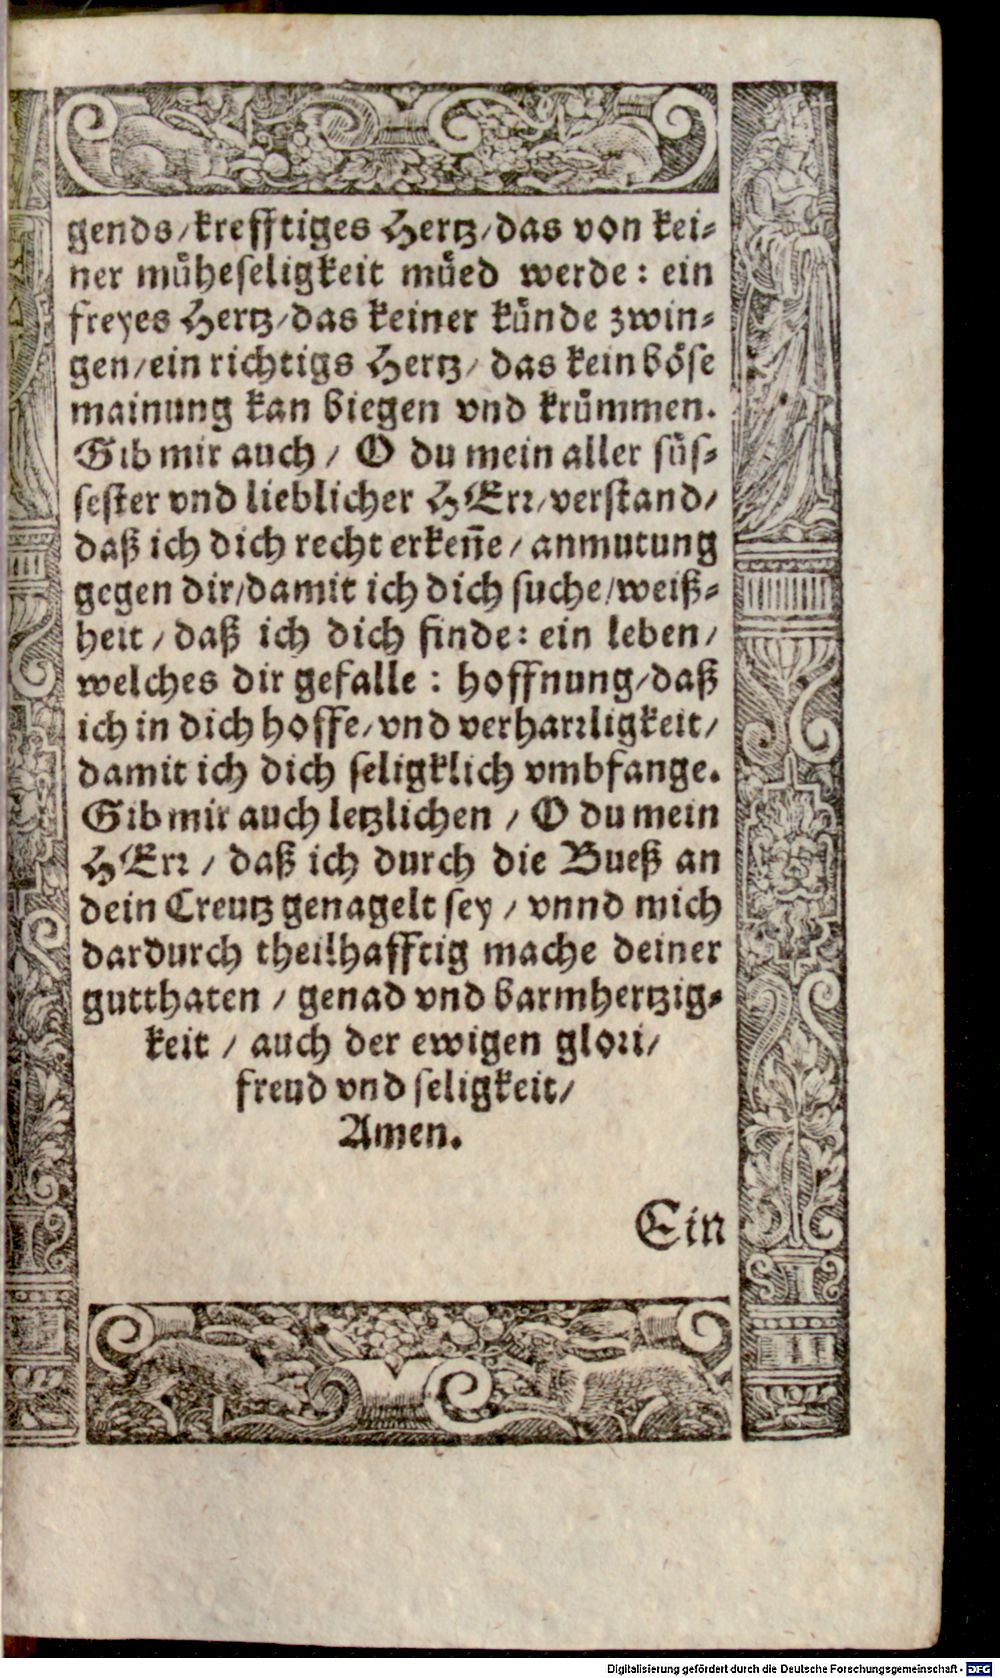 gends/krefftiges Hertz/das von kei⸗
ner muͤheseligkeit muͤed werde: ein
freyes Hertz/das keiner kuͤnde zwin⸗
gen/ein richtigs Hertz/ das kein boͤse
mainung kan biegen vnd kruͤmmen.
Gib mir auch/ O du mein aller suͤs⸗
sester vnd lieblicher HErr/verstand/
daß ich dich recht erkeñe/anmutung
gegen dir/damit ich dich suche/weiß⸗
heit/daß ich dich finde: ein leben/
welches dir gefalle: hoffnung/daß
ich in dich hoffe/vnd verharrligkeit/
damit ich dich seligklich vmbfange.
Gib mir auch letzlichen/ O du mein
HErr/ daß ich durch die Bueß an
dein Creutz genagelt sey/ vnnd mich
dardurch theilhafftig mache deiner
gutthaten/ genad vnd barmhertzig⸗
keit/ auch der ewigen glori/
freud vnd seligkeit/
Amen.
Ein
Digitalisierung gefördert durch die Deutsche Forschungsgemeinschaft - DFG